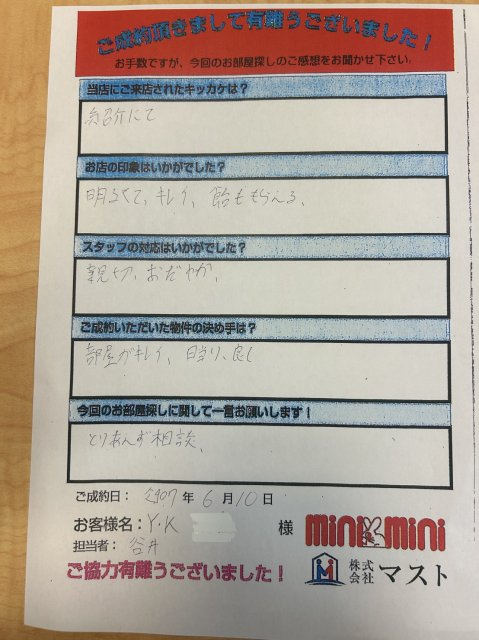 ご成約頂きまして有難うございました！
お手数ですが、今回のお部屋探しのご感想をお聞かせ下さい。
当店にご来店されたキッカケは？
紹介にて
お店の印象はいかがでした？
明るくて、キレイ、飴ももらえる、
スタッフの対応はいかがでした？
親切、おだやか、
ご成約いただいた物件の決め手は？
部屋がキレイ、日当り、良し
今回のお部屋探しに関して一言お願いします！
とりあえず相談、
ご成約日： 令和7年 6月10日
お客様名：Y・K 様
担当者：谷井
ご協力有難うございました！
mini mini
株式会社マスト